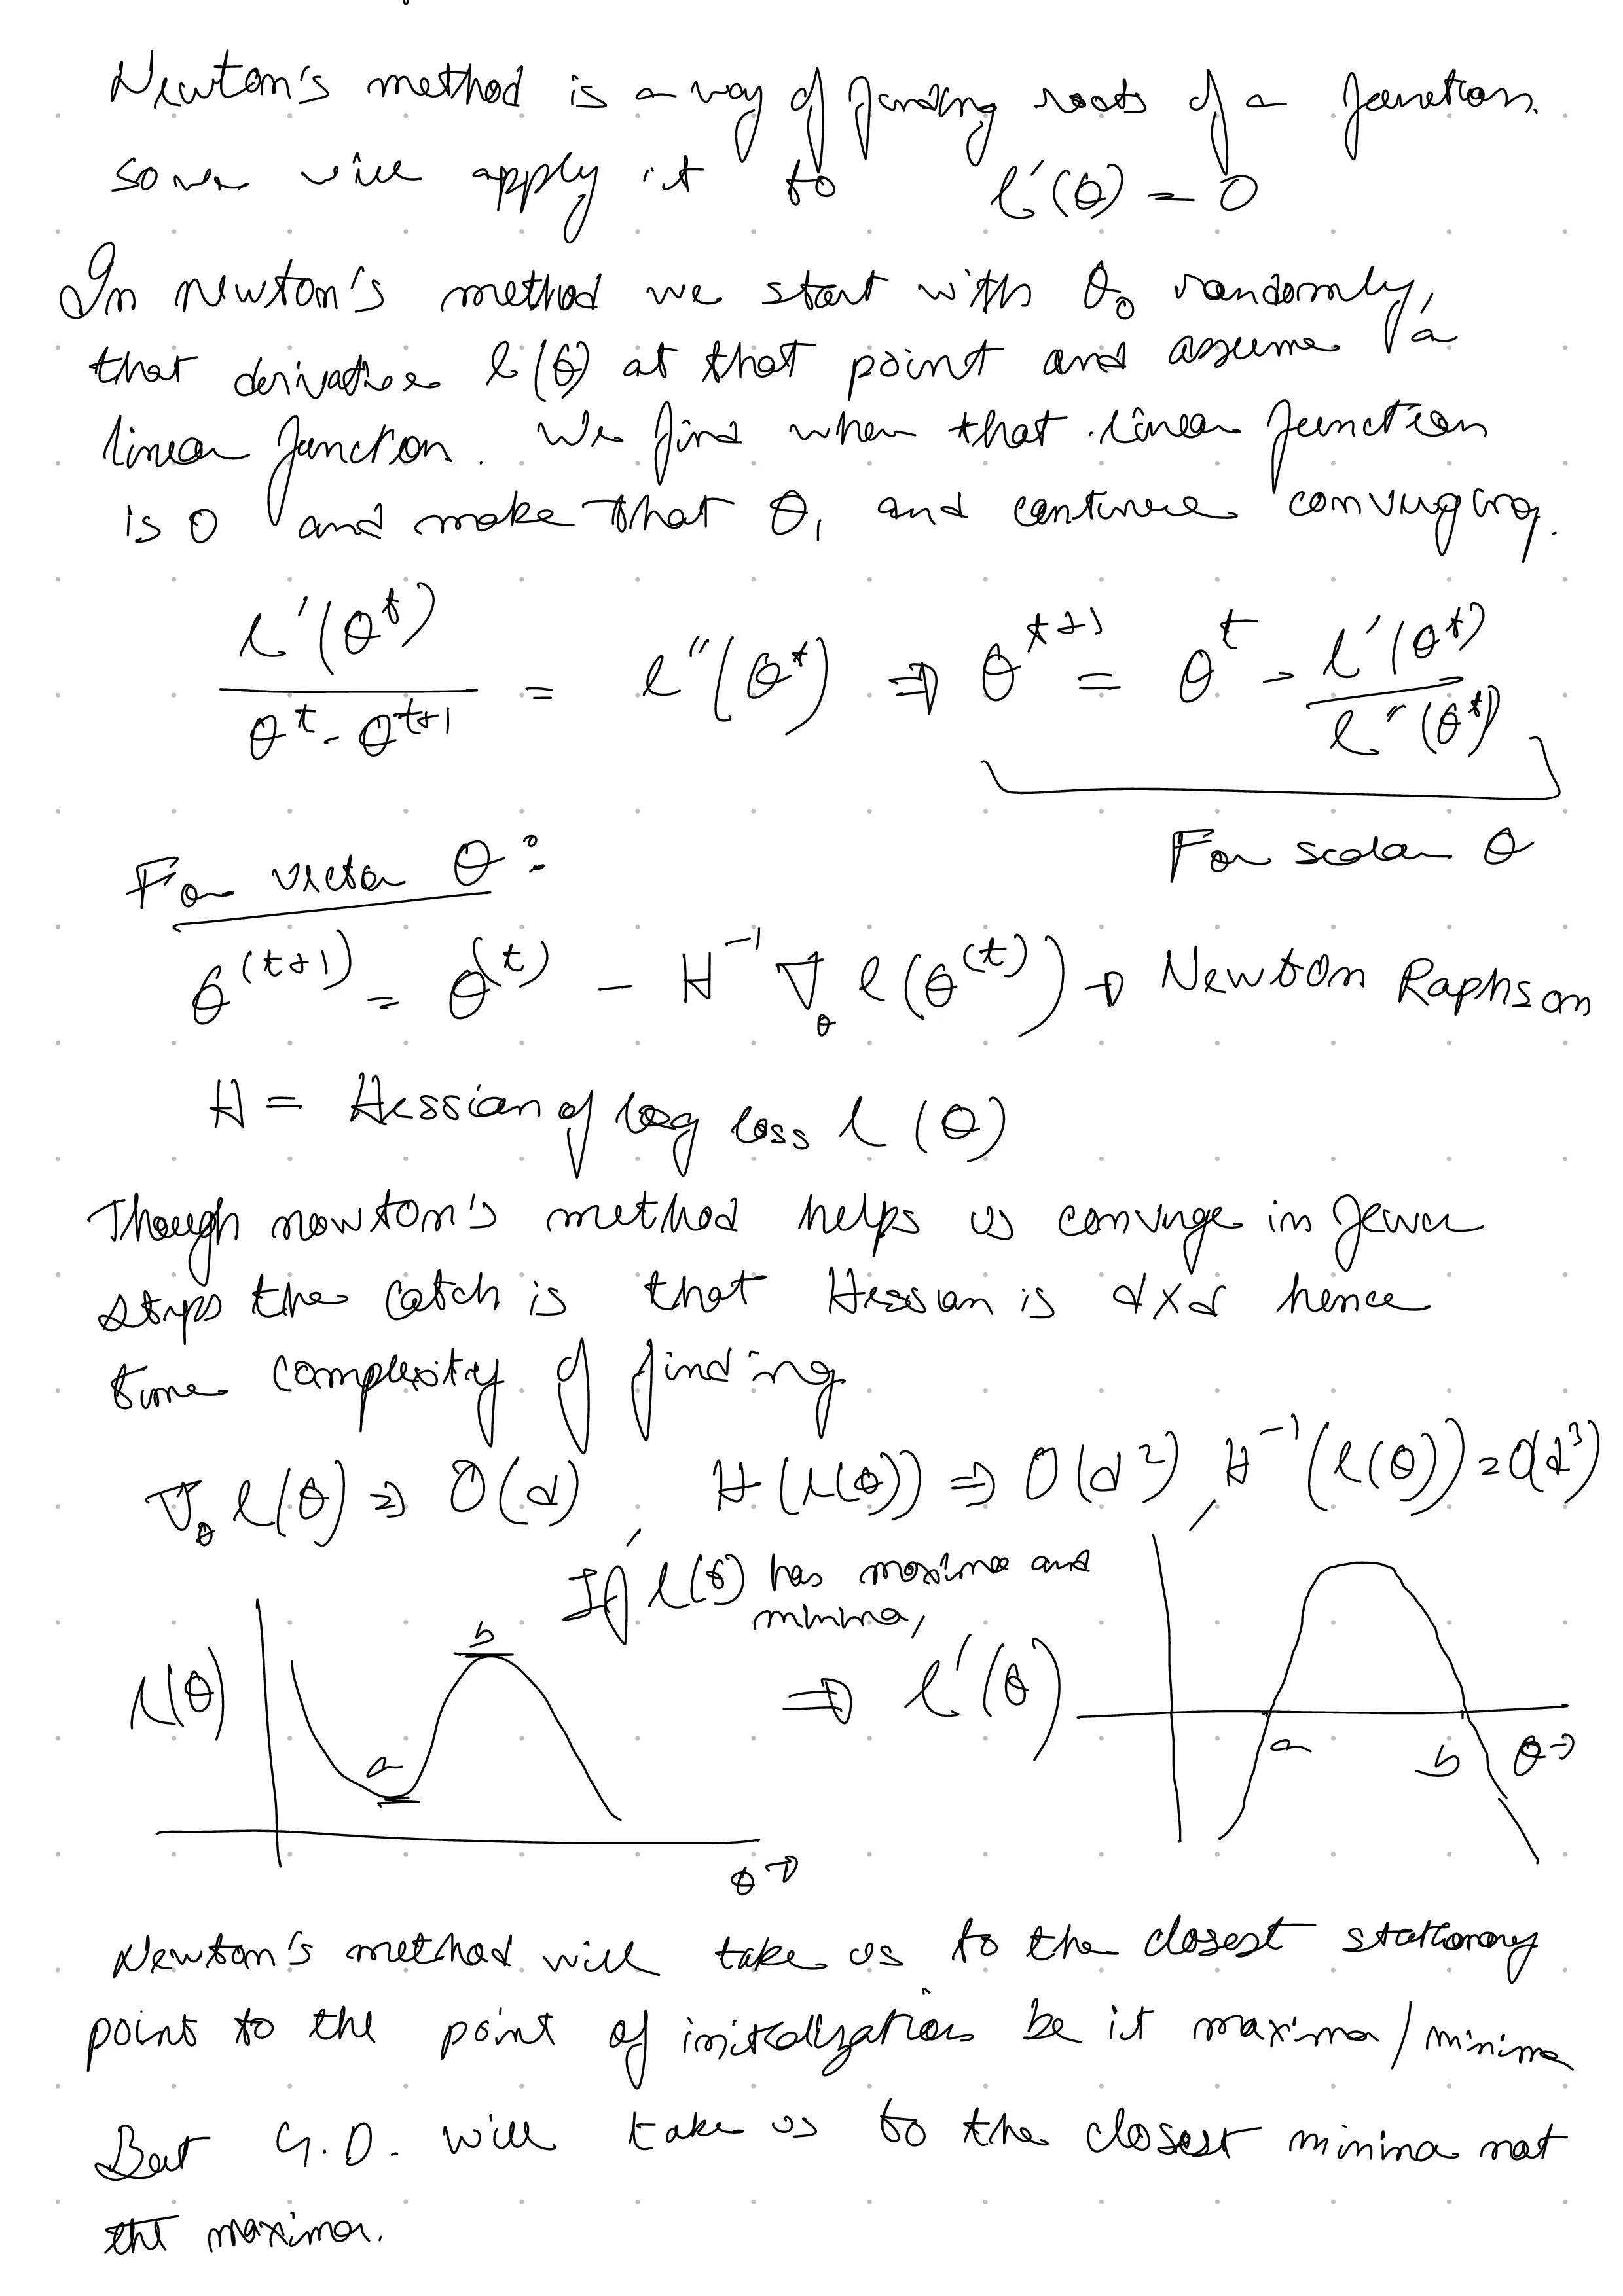 Newton's method is a way of finding roots of a function.
so we will apply it to l'(θ) = 0
In newton's method we start with θ₀ randomly,
that derivative l(θ) at that point and assume a
linear function. We find when that linear function
is 0 and make that θ₁ and continue converging.
l'(θ^t) / (θ^t - θ^(t+1)) = l''(θ^t) ⇒ θ^(t+1) = θ^t - l'(θ^t) / l''(θ^t)
For scalar θ
For vector θ:
θ^(t+1) = θ^(t) - H⁻¹ ∇_θ l(θ^(t)) → Newton Raphson
H = Hessian of log loss l(θ)
Though newton's method helps us converge in fewer
steps the catch is that Hessian is d×d hence
time complexity of finding
∇_θ l(θ) ⇒ O(d), H(l(θ)) ⇒ O(d²), H⁻¹(l(θ)) = O(d³)
If l(θ) has maxima and
minima,
l(θ) a b θ→
⇒ l'(θ) a b θ→
Newton's method will take us to the closest stationary
point to the point of initialization be it maxima/minima
But G.D. will take us to the closest minima not
the maxima.